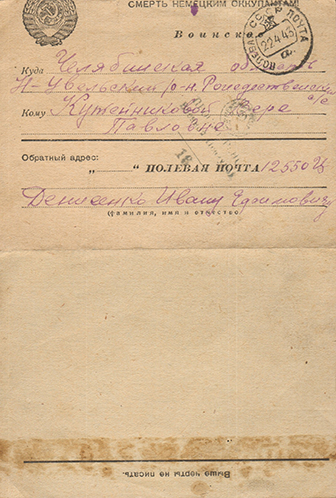 СМЕРТЬ НЕМЕЦКИМ ОККУПАНТАМ!
Воинское
ПОЛЕВАЯ ПОЧТА
22.4.45
Куда Челябинская область
Н-Увельский р-н. Рождественский с/с
Кому Кутейниковой Вере
Павловне
Обратный адрес:
„ “ ПОЛЕВАЯ ПОЧТА 12550 Ц
Денисенко Ивану Ефимовичу
(фамилия, имя и отчество)
Выше черты не писать.